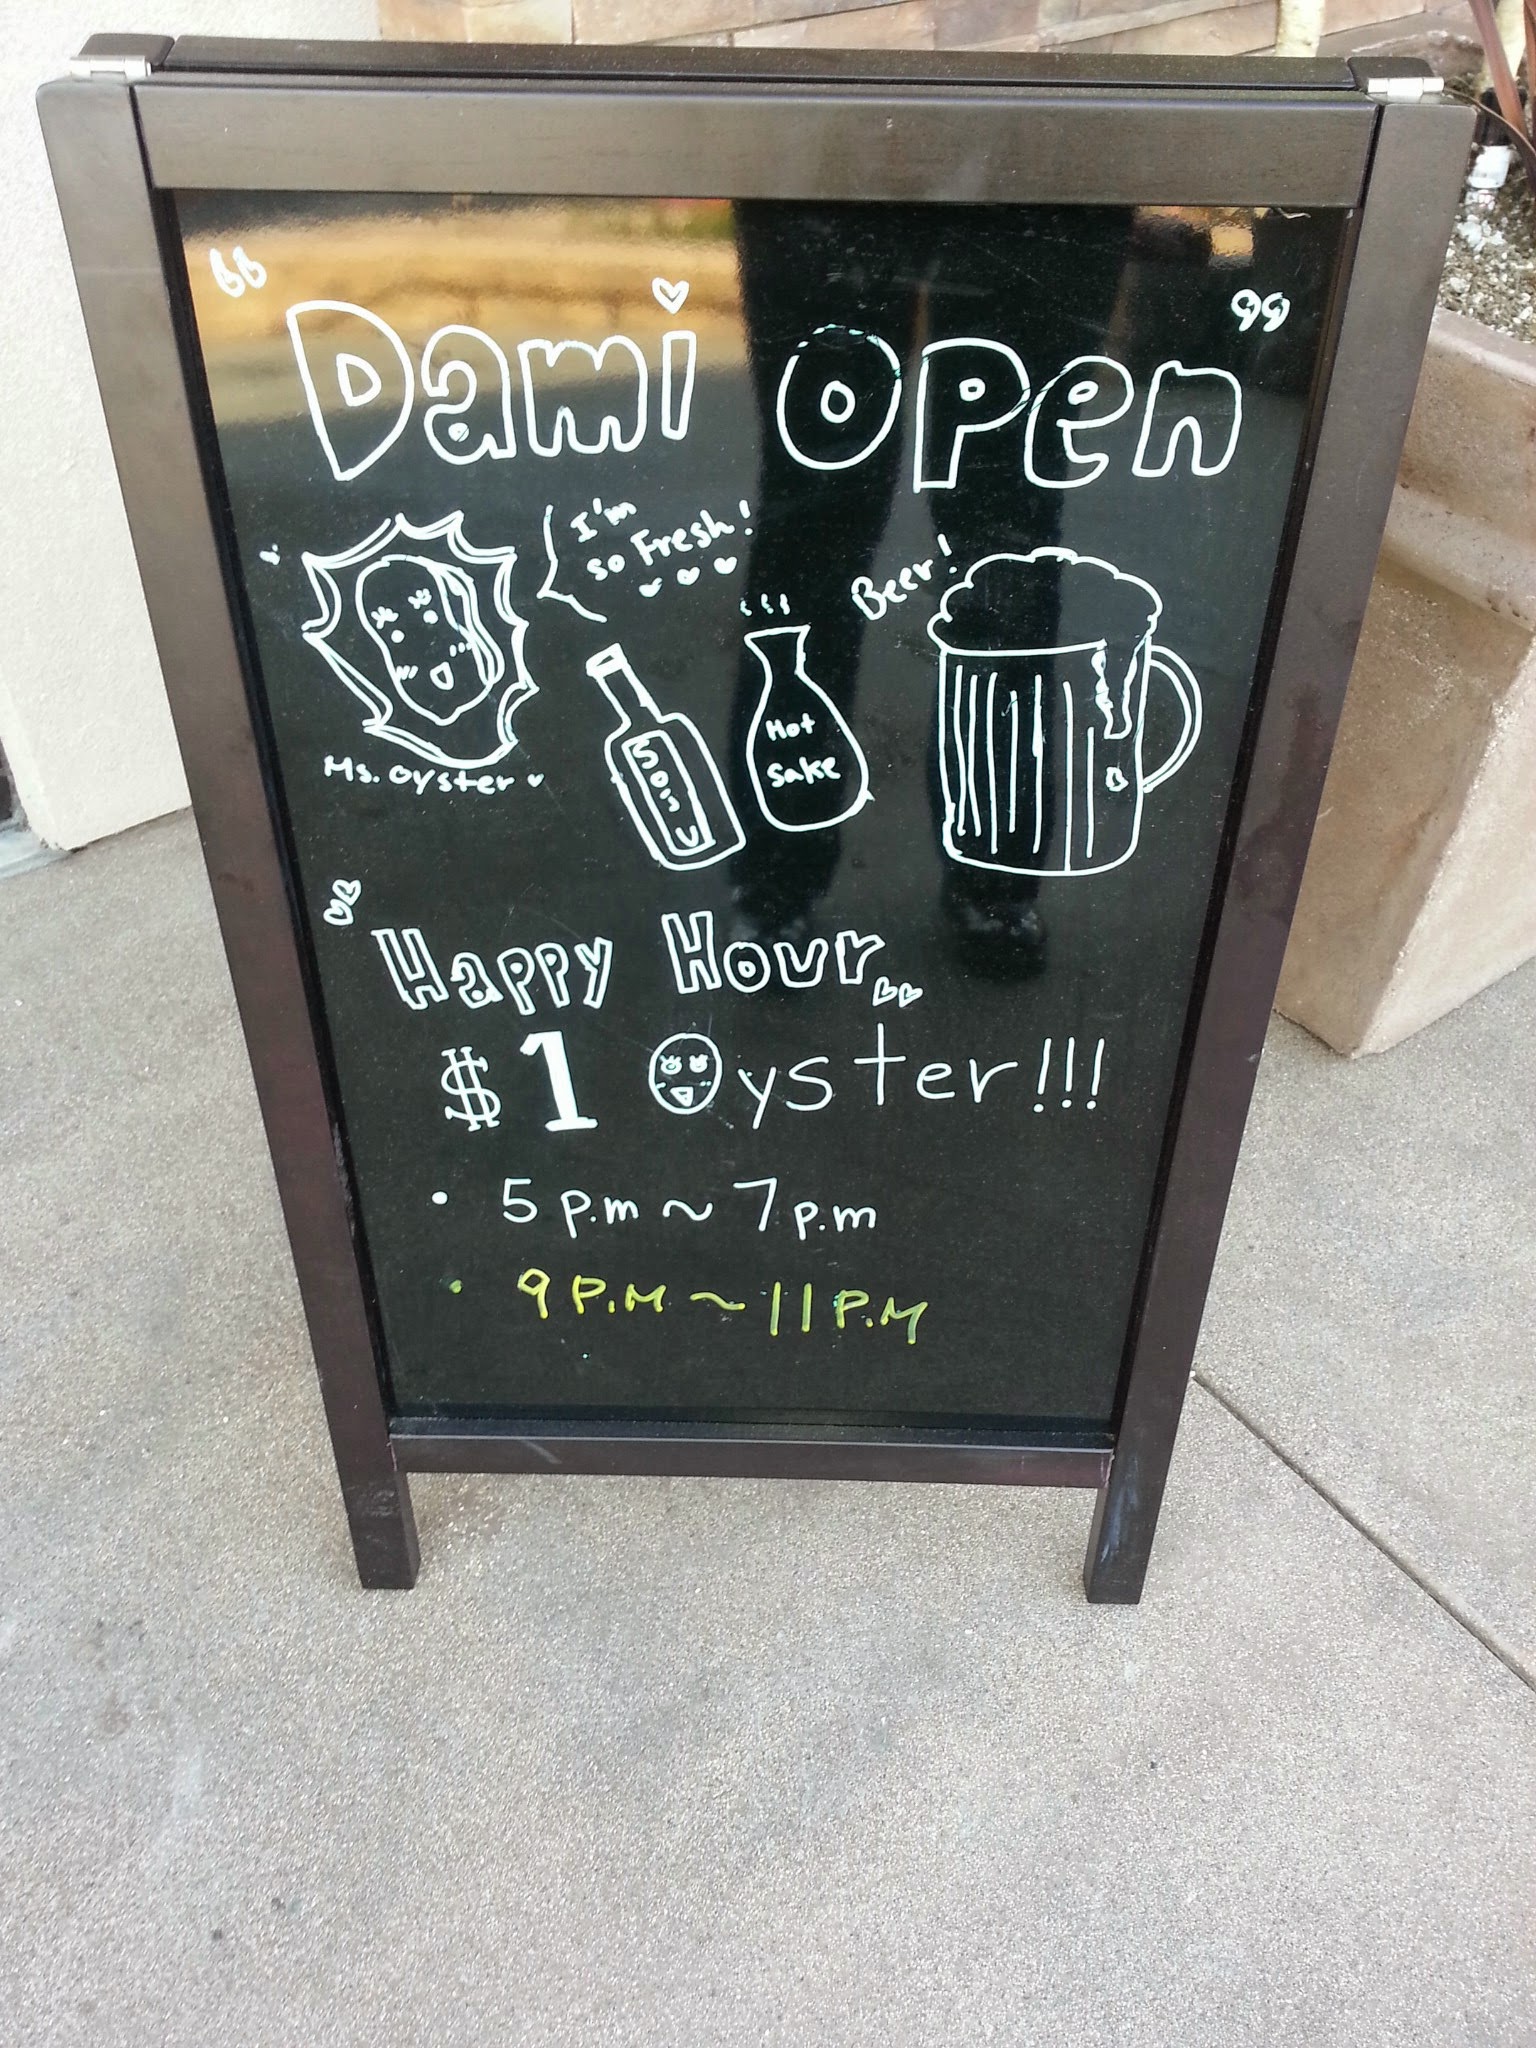 "Dami Open"
I'm
so Fresh!
Beer!
Ms. Oyster
Soju
Hot
Sake
Happy Hour
$1 Oyster!!!
• 5 p.m ~ 7 p.m
• 9 P.M ~ 11 P.M